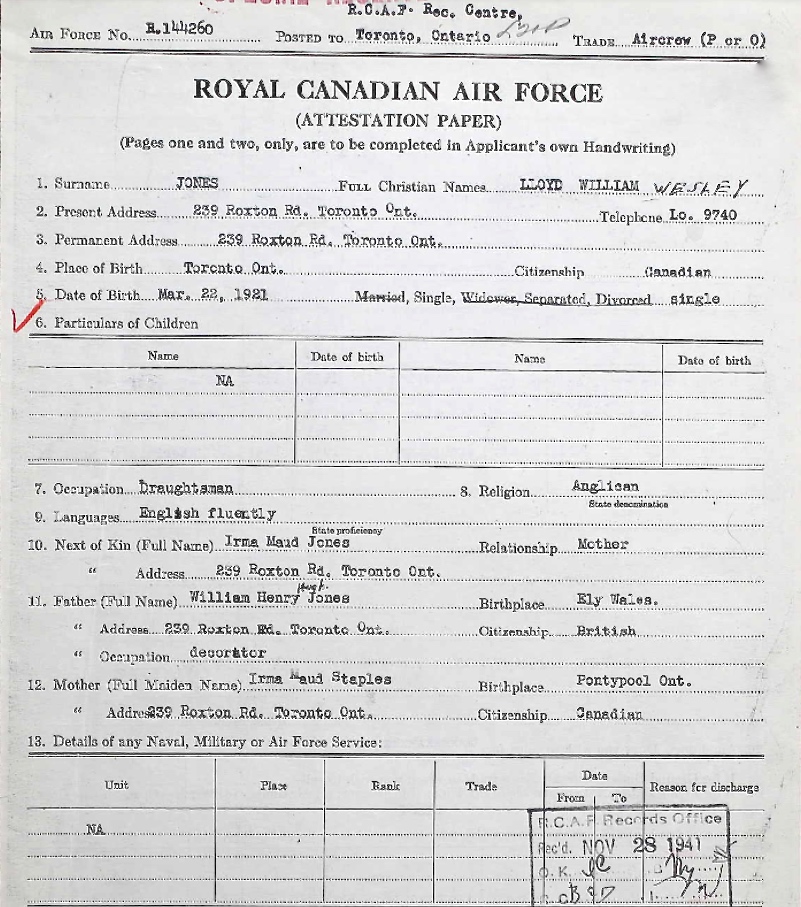 R.C.A.F. Rec. Centre,
AIR FORCE NO. R.144260 POSTED TO Toronto, Ontario TRADE Aircrew (P or O)
ROYAL CANADIAN AIR FORCE
(ATTESTATION PAPER)
(Pages one and two, only, are to be completed in Applicant's own Handwriting)
1. Surname JONES FULL Christian Names LLOYD WILLIAM WESLEY
2. Present Address 239 Roxton Rd. Toronto Ont. Telephone Lo. 9740
3. Permanent Address 239 Roxton Rd. Toronto Ont.
4. Place of Birth Toronto Ont. Citizenship Canadian
5. Date of Birth Mar. 22, 1921 Married, Single, Widower, Separated, Divorced single
6. Particulars of Children
Name Date of birth Name Date of birth
NA
7. Occupation Draughtsman 8. Religion Anglican
State denomination
9. Languages English fluently
State proficiency
10. Next of Kin (Full Name) Irma Maud Jones Relationship Mother
" Address 239 Roxton Rd. Toronto Ont.
11. Father (Full Name) William Henry Jones Birthplace Ely Wales.
" Address 239 Roxton Rd. Toronto Ont. Citizenship British
" Occupation decorator
12. Mother (Full Maiden Name) Irma Maud Staples Birthplace Pontypool Ont.
" Address 239 Roxton Rd. Toronto Ont. Citizenship Canadian
13. Details of any Naval, Military or Air Force Service:
Unit Place Rank Trade Date Reason for discharge
From To
NA
R.C.A.F. Records Office
Rec'd. NOV 28 1941
O.K.